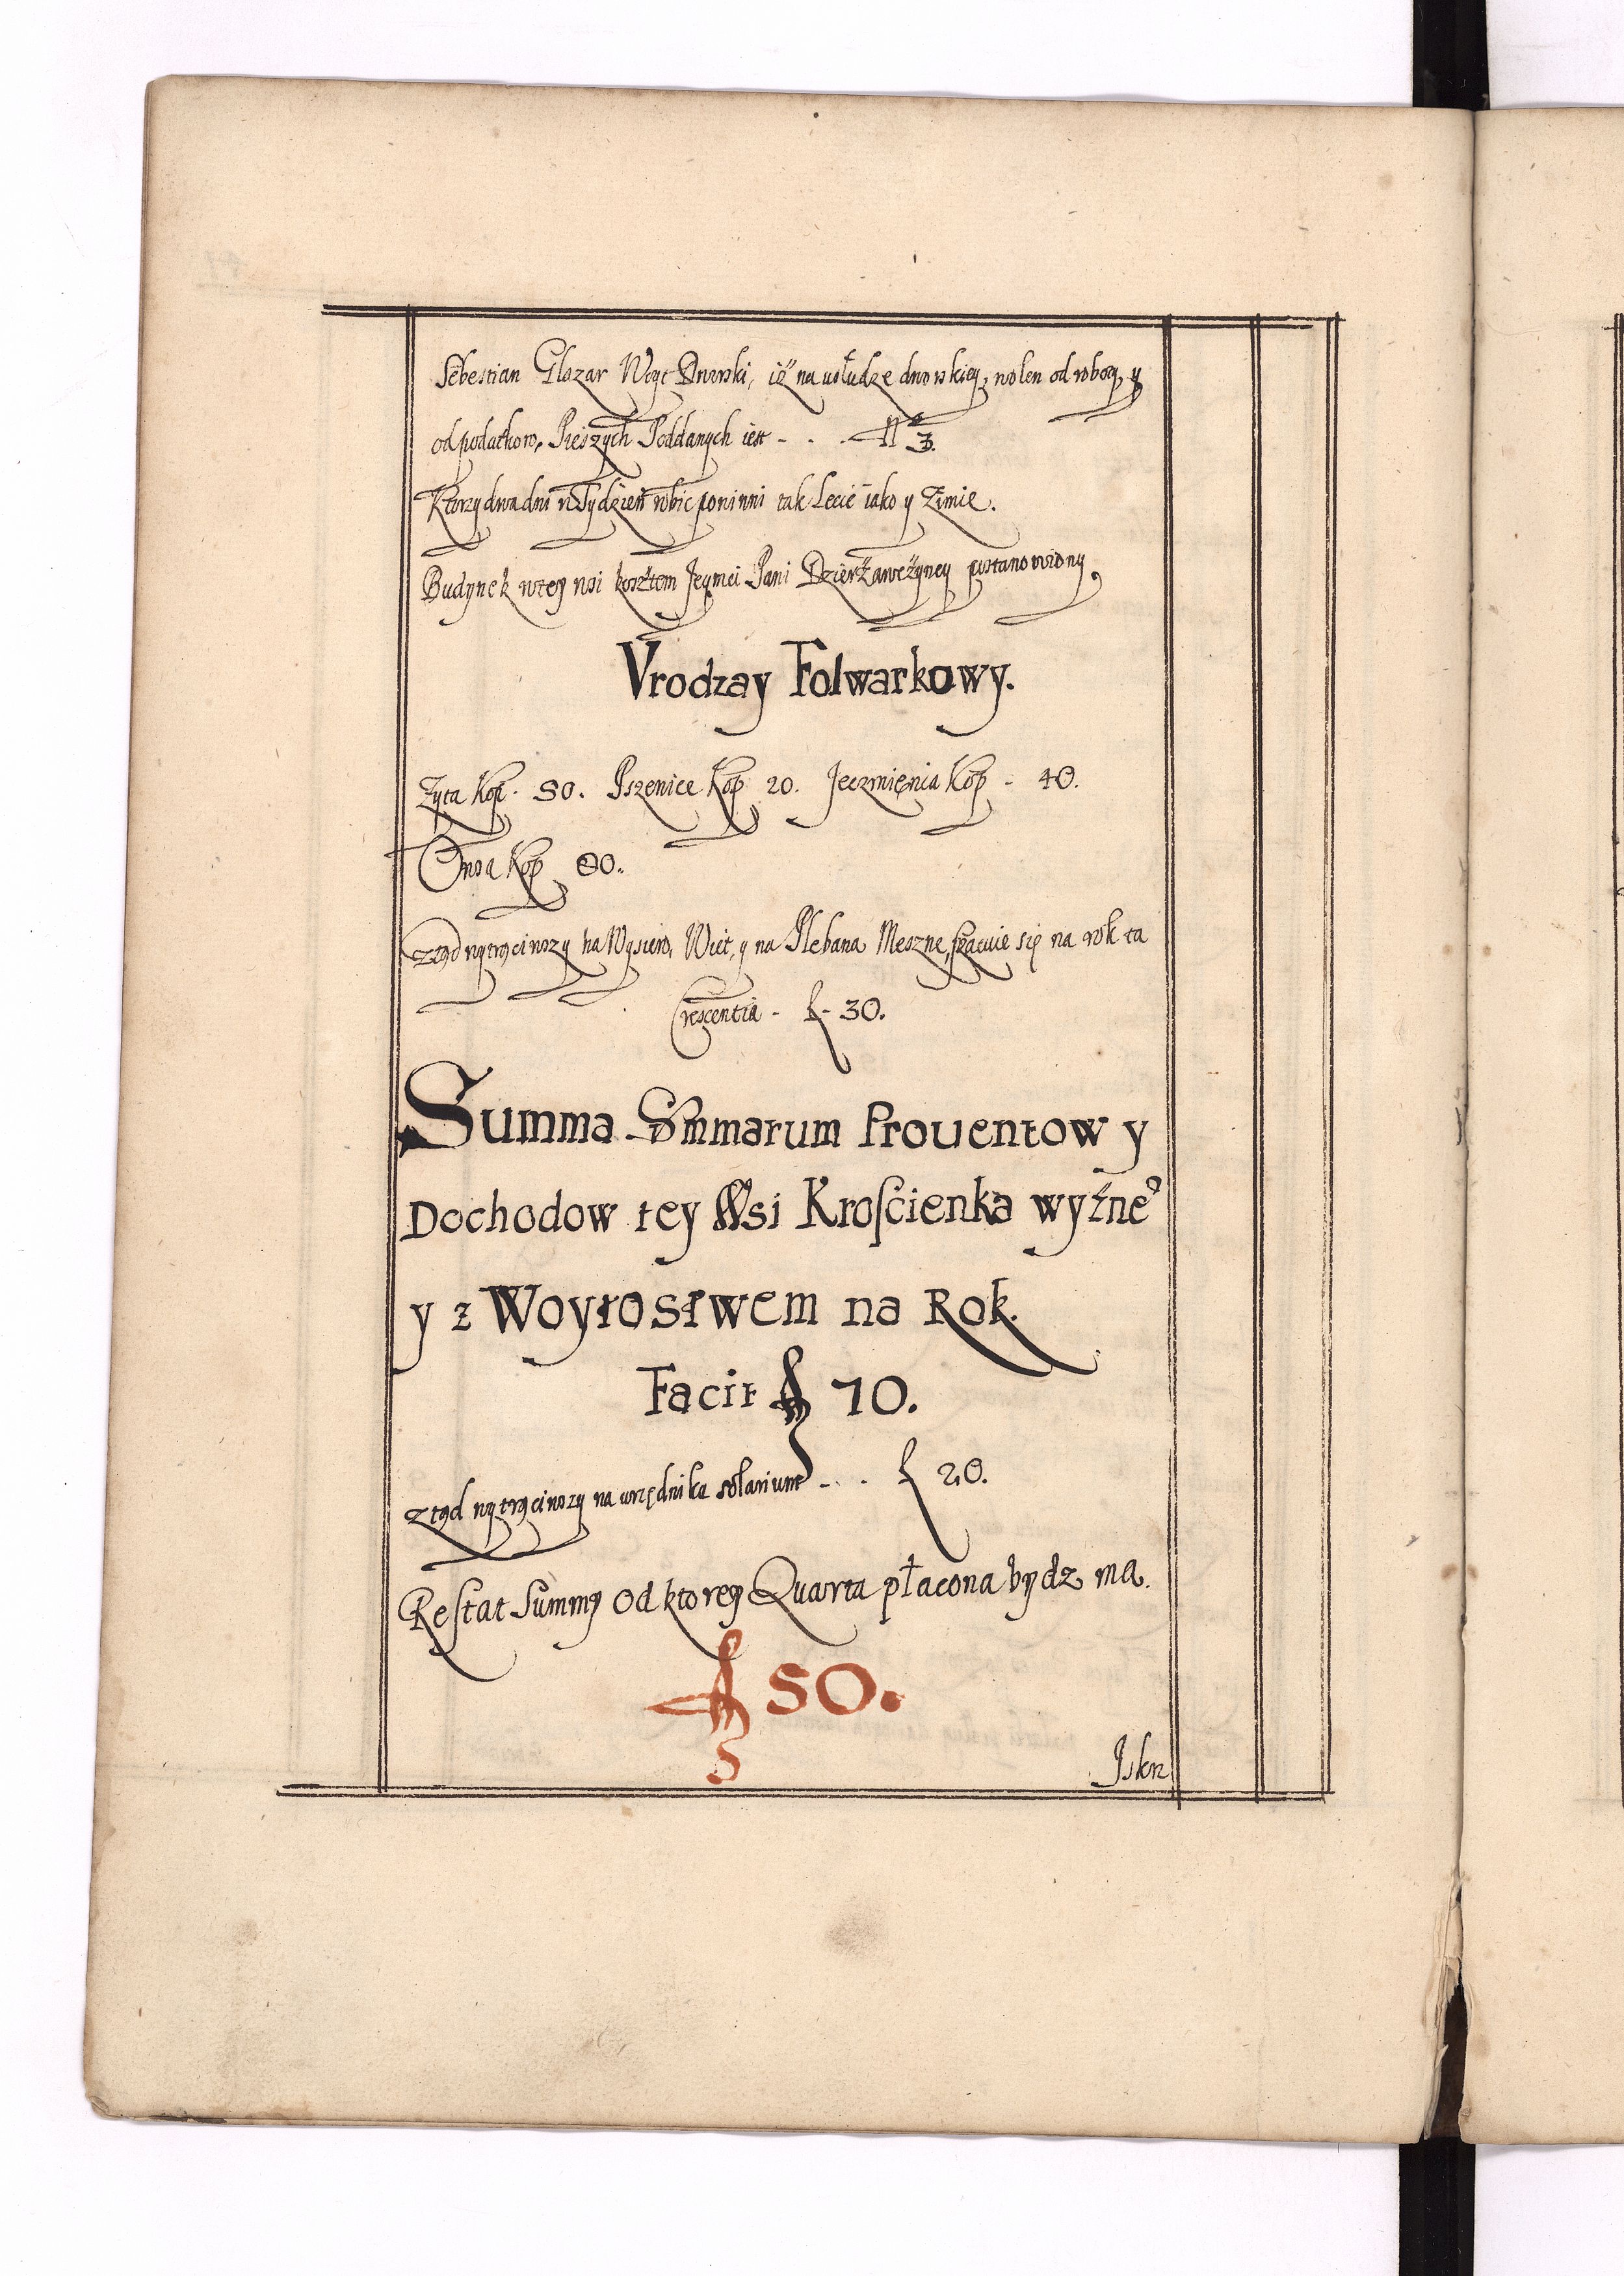 Sebestian Glazar Woyt Dworski, iż na usłudze dworskiey, wolen od roboty, y
od podatkow, Pieszych Poddanych iest - . . - N 3.
Ktorzy dwa dni w Tydzień robic powinni tak Lecie iako y Zimie.
Budynek w tey wsi kosztem Jeymci Pani Dzierżawczyney postanowiony.
Vrodzay Folwarkowy.
Zyta Kop. 50. Pszenice Kop 20. Jeczmienia Kop - 40.
Owsa Kop 80.
Ztąd wytrąciwszy na Wysiew, Wict, y na Plebana Meszne, szacuie się na rok ta
Crescentia - f - 30.
Summa Summarum Prouentow y
Dochodow tey Wsi Krościenka wyżne
y z Woytostwem na Rok.
Facit f 70.
ztąd wytrąciwszy na urzędnika solarium - . . f 20.
Restat Summy od ktorey Quarta płacona bydz ma.
f 50.